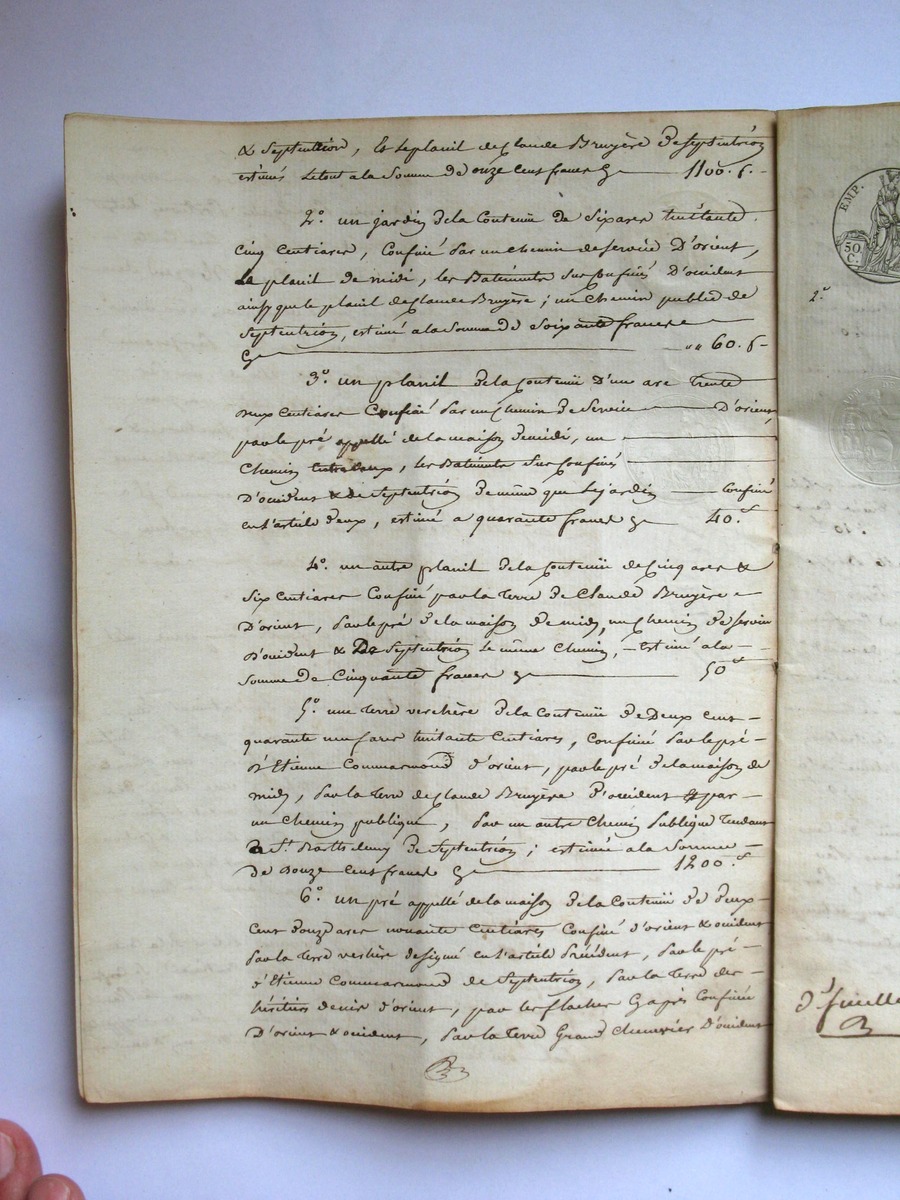 & Septentrion, et le planil de Claude Bruyère de septentrion
estimés le tout a la somme de onze cent francs 1100. f. -
2.° un jardin de la Contenüe de Six ares huitante
Cinq Centiares, Confiné par un chemin de service D'orient,
Le planil de midi, les Batiments sus Confinés D'occident
ainsy que le planil de Claude Bruyère ; un Chemin public de
Septentrion, estimé a la somme de Soixante francs
" 60. f -
3.° un planil de la Contenüe D'une are trente
deux Centiares Confiné par un Chemin de Service D'orient,
par le pré appellé de la maison de midi, un
Chemin entre deux, les Batiments sus Confinés
D'occident & de Septentrion de même que le jardin Confiné
en l'article deux, estimé a quarante francs 40. f
4.° un autre planil de la Contenüe de Cinq ares &
Six Centiares Confiné par la Terre de Claude Bruyère
D'orient, par le pré de la maison de midy, un Chemin de servin
D'occident & De Septentrion le même Chemin, - estimé a la -
Somme de Cinquante francs 50 f
5.° une Terre verchère de la Contenüe de Deux cent -
quarante neuf ares huitante Centiares, Confiné par le pré -
d'Etienne Commarmond d'orient, par le pré de la maison de
midy, par la Terre de Claude Bruyère d'occident & par
un Chemin publique, par un autre Chemin publique Tendant
a St. Barthelemy de Septentrion ; estimée a la Somme -
De Douze Cent francs 1200. f
6.° un pré appellé de la maison de la Contenüe de deux
Cent douze ares nonante Centiares Confiné d'orient & occident
par la Terre verchère designé en l'article Précédent, par le pré -
d'Etienne Commarmond de Septentrion, par la Terre des -
héritiers d'orient, par les flaches Cy après Confinée
D'orient & occident, par la Terre Grand Chenevier D'occident
EMP.
50
C.
2.°